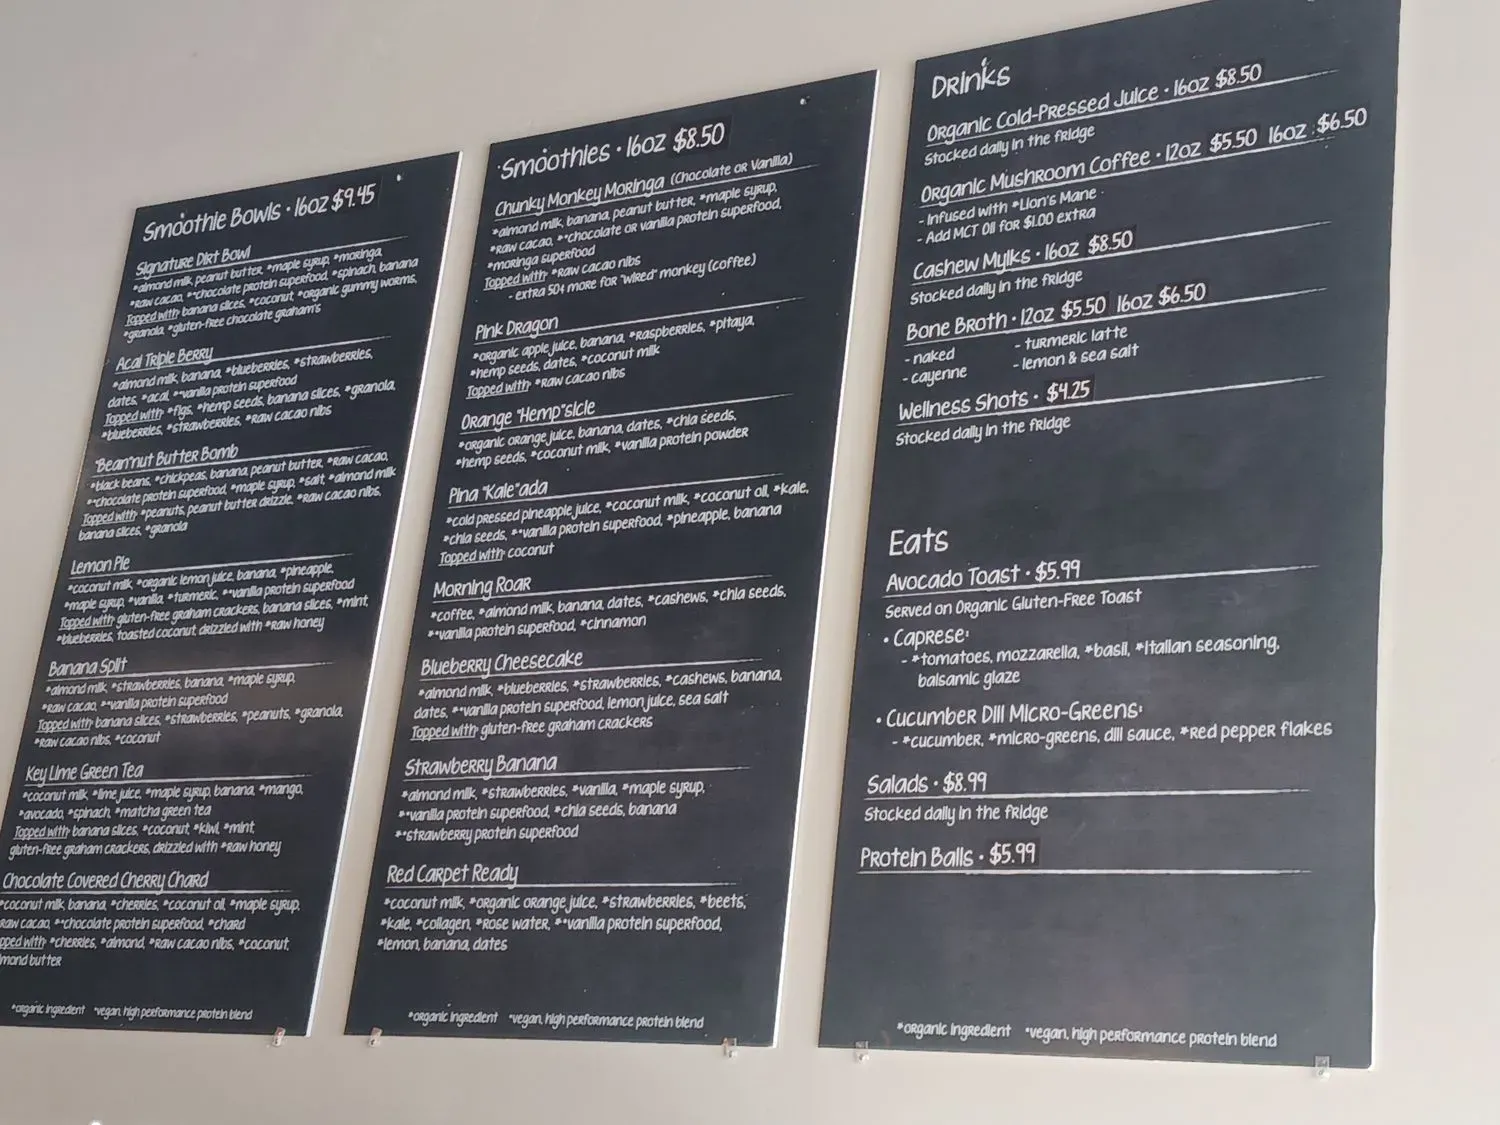 Smoothie Bowls • 16oz $9.45
Signature Dirt Bowl
*almond milk, peanut butter, *maple syrup, *moringa,
*raw cacao, **chocolate protein superfood, *spinach, banana
Topped with: banana slices, *coconut, *organic gummy worms,
*granola, *gluten-free chocolate graham's
Acai Triple Berry
*almond milk, banana, *blueberries, *strawberries,
dates, *acai, **vanilla protein superfood
Topped with: *figs, *hemp seeds, banana slices, *granola,
*blueberries, *strawberries, *raw cacao nibs
"Bean"nut Butter Bomb
*black beans, *chickpeas, banana, peanut butter, *raw cacao,
**chocolate protein superfood, *maple syrup, *salt, *almond milk
Topped with: *peanuts, peanut butter drizzle, *raw cacao nibs,
banana slices, *granola
Lemon Pie
*coconut milk, *organic lemon juice, banana, *pineapple,
*maple syrup, *vanilla, *turmeric, **vanilla protein superfood
Topped with: gluten-free graham crackers, banana slices, *mint,
*blueberries, toasted coconut, drizzled with *raw honey
Banana Split
*almond milk, *strawberries, banana, *maple syrup,
*raw cacao, **vanilla protein superfood
Topped with: banana slices, *strawberries, *peanuts, *granola,
*raw cacao nibs, *coconut
Key Lime Green Tea
*coconut milk, *lime juice, *maple syrup, banana, *mango,
*avocado, *spinach, *matcha green tea
Topped with: banana slices, *coconut, *kiwi, *mint,
gluten-free graham crackers, drizzled with *raw honey
Chocolate Covered Cherry Chard
*coconut milk, banana, *cherries, *coconut oil, *maple syrup,
raw cacao, **chocolate protein superfood, *chard
pped with: *cherries, *almond, *raw cacao nibs, *coconut,
mond butter
*organic ingredient *vegan, high performance protein blend
Smoothies • 16oz $8.50
Chunky Monkey Moringa (Chocolate or Vanilla)
*almond milk, banana, peanut butter, *maple syrup,
*raw cacao, **chocolate or vanilla protein superfood,
*moringa superfood
Topped with: *raw cacao nibs
- extra 50¢ more for "wired" monkey (coffee)
Pink Dragon
*organic apple juice, banana, *raspberries, *pitaya,
*hemp seeds, dates, *coconut milk
Topped with: *raw cacao nibs
Orange "Hemp"sicle
*organic orange juice, banana, dates, *chia seeds,
*hemp seeds, *coconut milk, *vanilla protein powder
Pina "Kale"ada
*cold pressed pineapple juice, *coconut milk, *coconut oil, *kale,
*chia seeds, **vanilla protein superfood, *pineapple, banana
Topped with: coconut
Morning Roar
*coffee, *almond milk, banana, dates, *cashews, *chia seeds,
**vanilla protein superfood, *cinnamon
Blueberry Cheesecake
*almond milk, *blueberries, *strawberries, *cashews, banana,
dates, **vanilla protein superfood, lemon juice, sea salt
Topped with: gluten-free graham crackers
Strawberry Banana
*almond milk, *strawberries, *vanilla, *maple syrup,
**vanilla protein superfood, *chia seeds, banana
**strawberry protein superfood
Red Carpet Ready
*coconut milk, *organic orange juice, *strawberries, *beets,
*kale, *collagen, *rose water, **vanilla protein superfood,
*lemon, banana, dates
*organic ingredient *vegan, high performance protein blend
Drinks
Organic Cold-Pressed Juice • 16oz $8.50
Stocked daily in the fridge
Organic Mushroom Coffee • 12oz $5.50 16oz $6.50
- Infused with *Lion's Mane
- Add MCT Oil for $1.00 extra
Cashew Mylks • 16oz $8.50
Stocked daily in the fridge
Bone Broth • 12oz $5.50 16oz $6.50
- naked - turmeric latte
- cayenne - lemon & sea salt
Wellness Shots • $4.25
Stocked daily in the fridge
Eats
Avocado Toast • $5.99
Served on Organic Gluten-Free Toast
• Caprese:
- *tomatoes, mozzarella, *basil, *Italian seasoning,
balsamic glaze
• Cucumber Dill Micro-Greens:
- *cucumber, *micro-greens, dill sauce, *red pepper flakes
Salads • $8.99
Stocked daily in the fridge
Protein Balls • $5.99
*organic ingredient *vegan, high performance protein blend